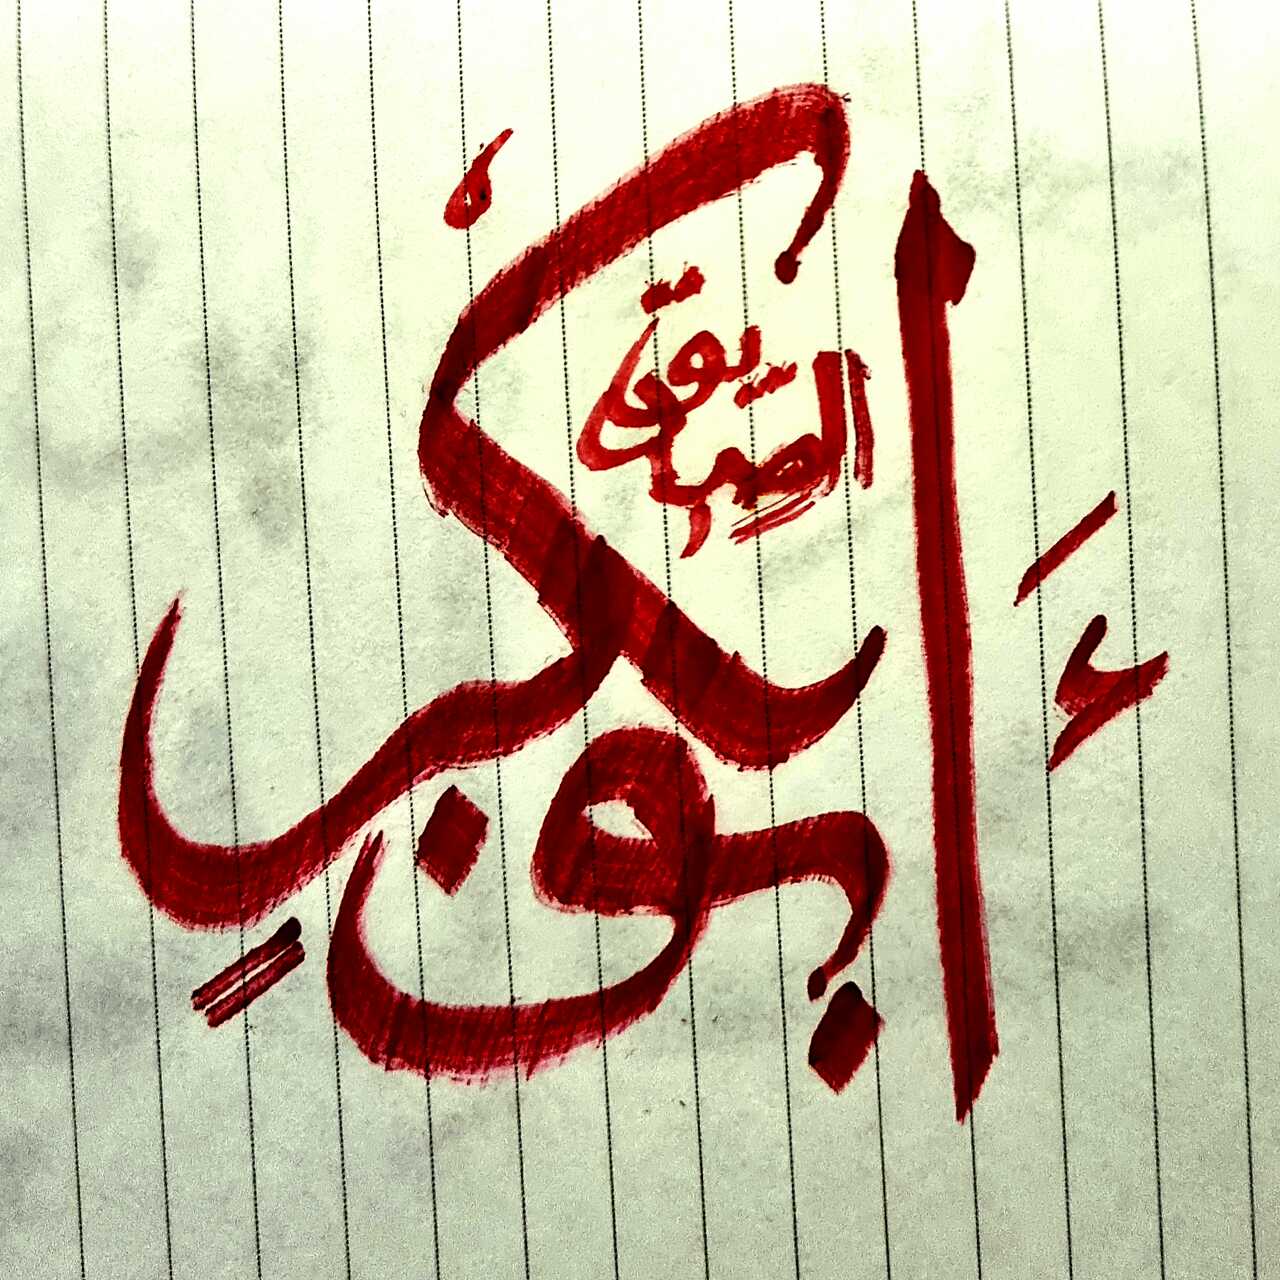 أَبُو بَكْرٍ
الصديق